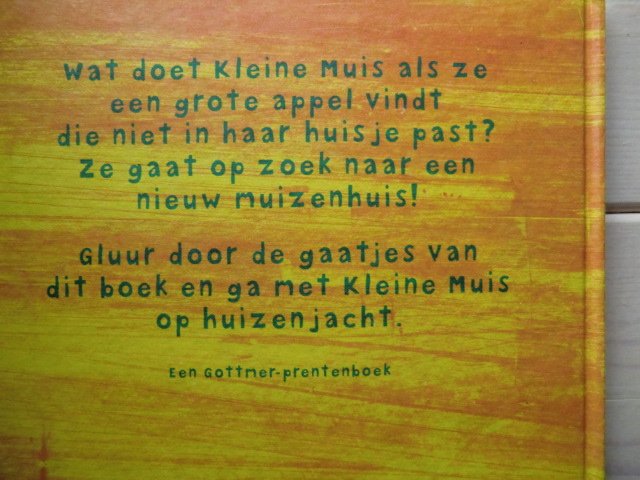 Wat doet Kleine Muis als ze
een grote appel vindt
die niet in haar huisje past?
Ze gaat op zoek naar een
nieuw muizenhuis!
Gluur door de gaatjes van
dit boek en ga met Kleine Muis
op huizenjacht.
Een Gottmer-prentenboek